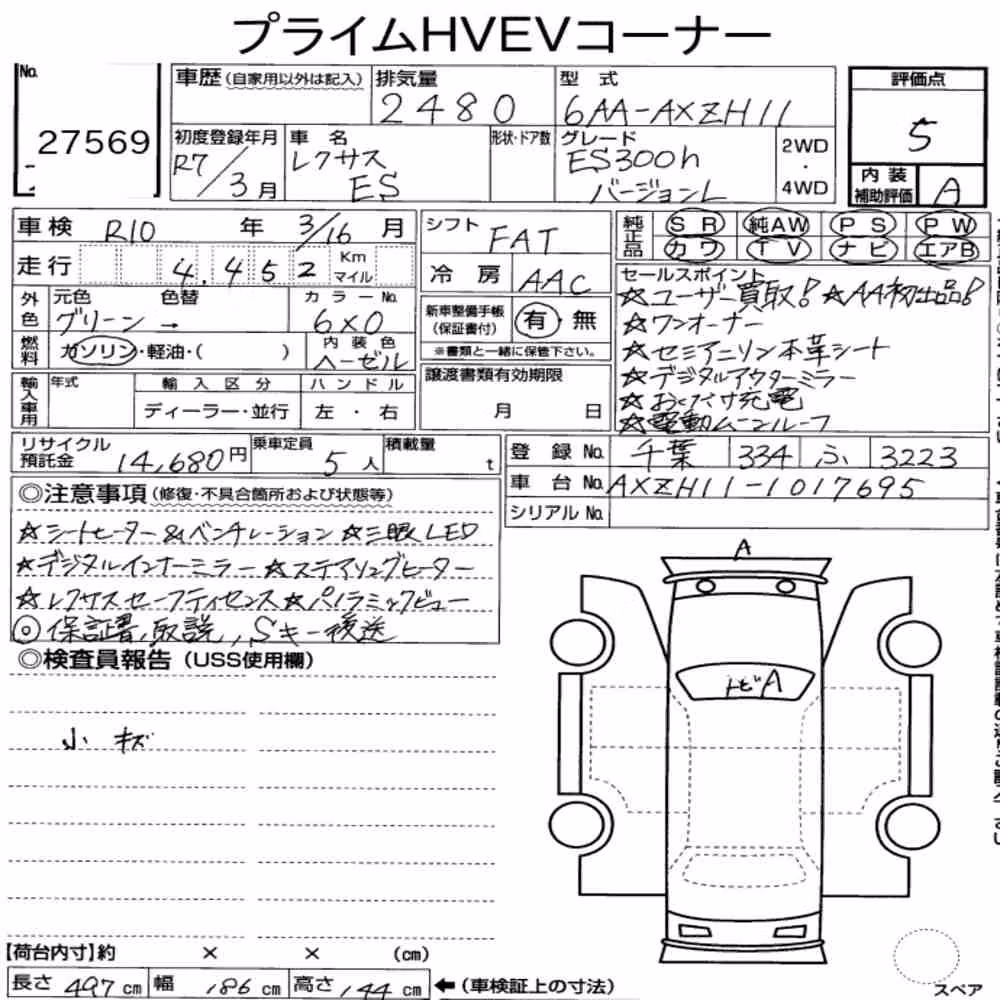 プライムHVEVコーナー
No. 27569
車歴(自家用以外は記入) 排気量 2480 型式 6AA-AXZH11
評価点 5
内装補助評価 A
初度登録年月 R7/3月 車名 レクサス ES 形状・ドア数 グレード ES300h バージョンL 2WD・4WD
車検 R10年 3/16月
走行 4.452 Km マイル
シフト FAT
冷房 AAC
純正品 SR 純AW PS PW
カワ TV ナビ エアB
外色 元色 グリーン→ 色替 カラーNo. 6X0
燃料 ガソリン・軽油・( ) 内装色 ヘーゼル
新車整備手帳(保証書付) 有・無
※書類と一緒に保管下さい。
セールスポイント
☆ユーザー買取! ☆AA初出品!
☆ワンオーナー
☆セミアニリン本革シート
☆デジタルアウターミラー
☆おくだけ充電
☆電動ムーンルーフ
輸入車用 年式 輸入区分 ディーラー・並行 ハンドル 左・右
譲渡書類有効期限 月 日
リサイクル預託金 14,680円 乗車定員 5人 積載量 t
登録No. 千葉 334 ふ 3223
車台No. AXZH11-1017695
シリアルNo.
◎注意事項(修復・不具合箇所および状態等)
☆シートヒーター&ベンチレーション ☆三眼LED
☆デジタルインナーミラー ☆ステアリングヒーター
☆レクサスセーフティセンス ☆パノラミックビュー
◎保証書、取説、Sキー後送
◎検査員報告(USS使用欄)
小キズ
A
トビA
【荷台内寸】約 × × (cm)
長さ 497cm 幅 186cm 高さ 144cm ←(車検証上の寸法)
スペア